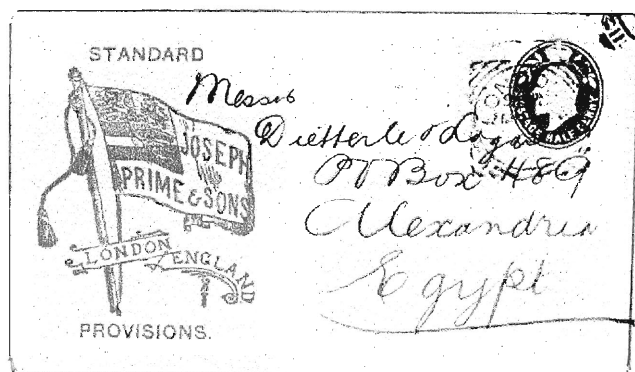 STANDARD
JOSEPH
PRIME & SONS
LONDON
ENGLAND
PROVISIONS.
Messrs
Dietterle & Logan
PO Box 489
Alexandria
Egypt
POSTAGE HALFPENNY